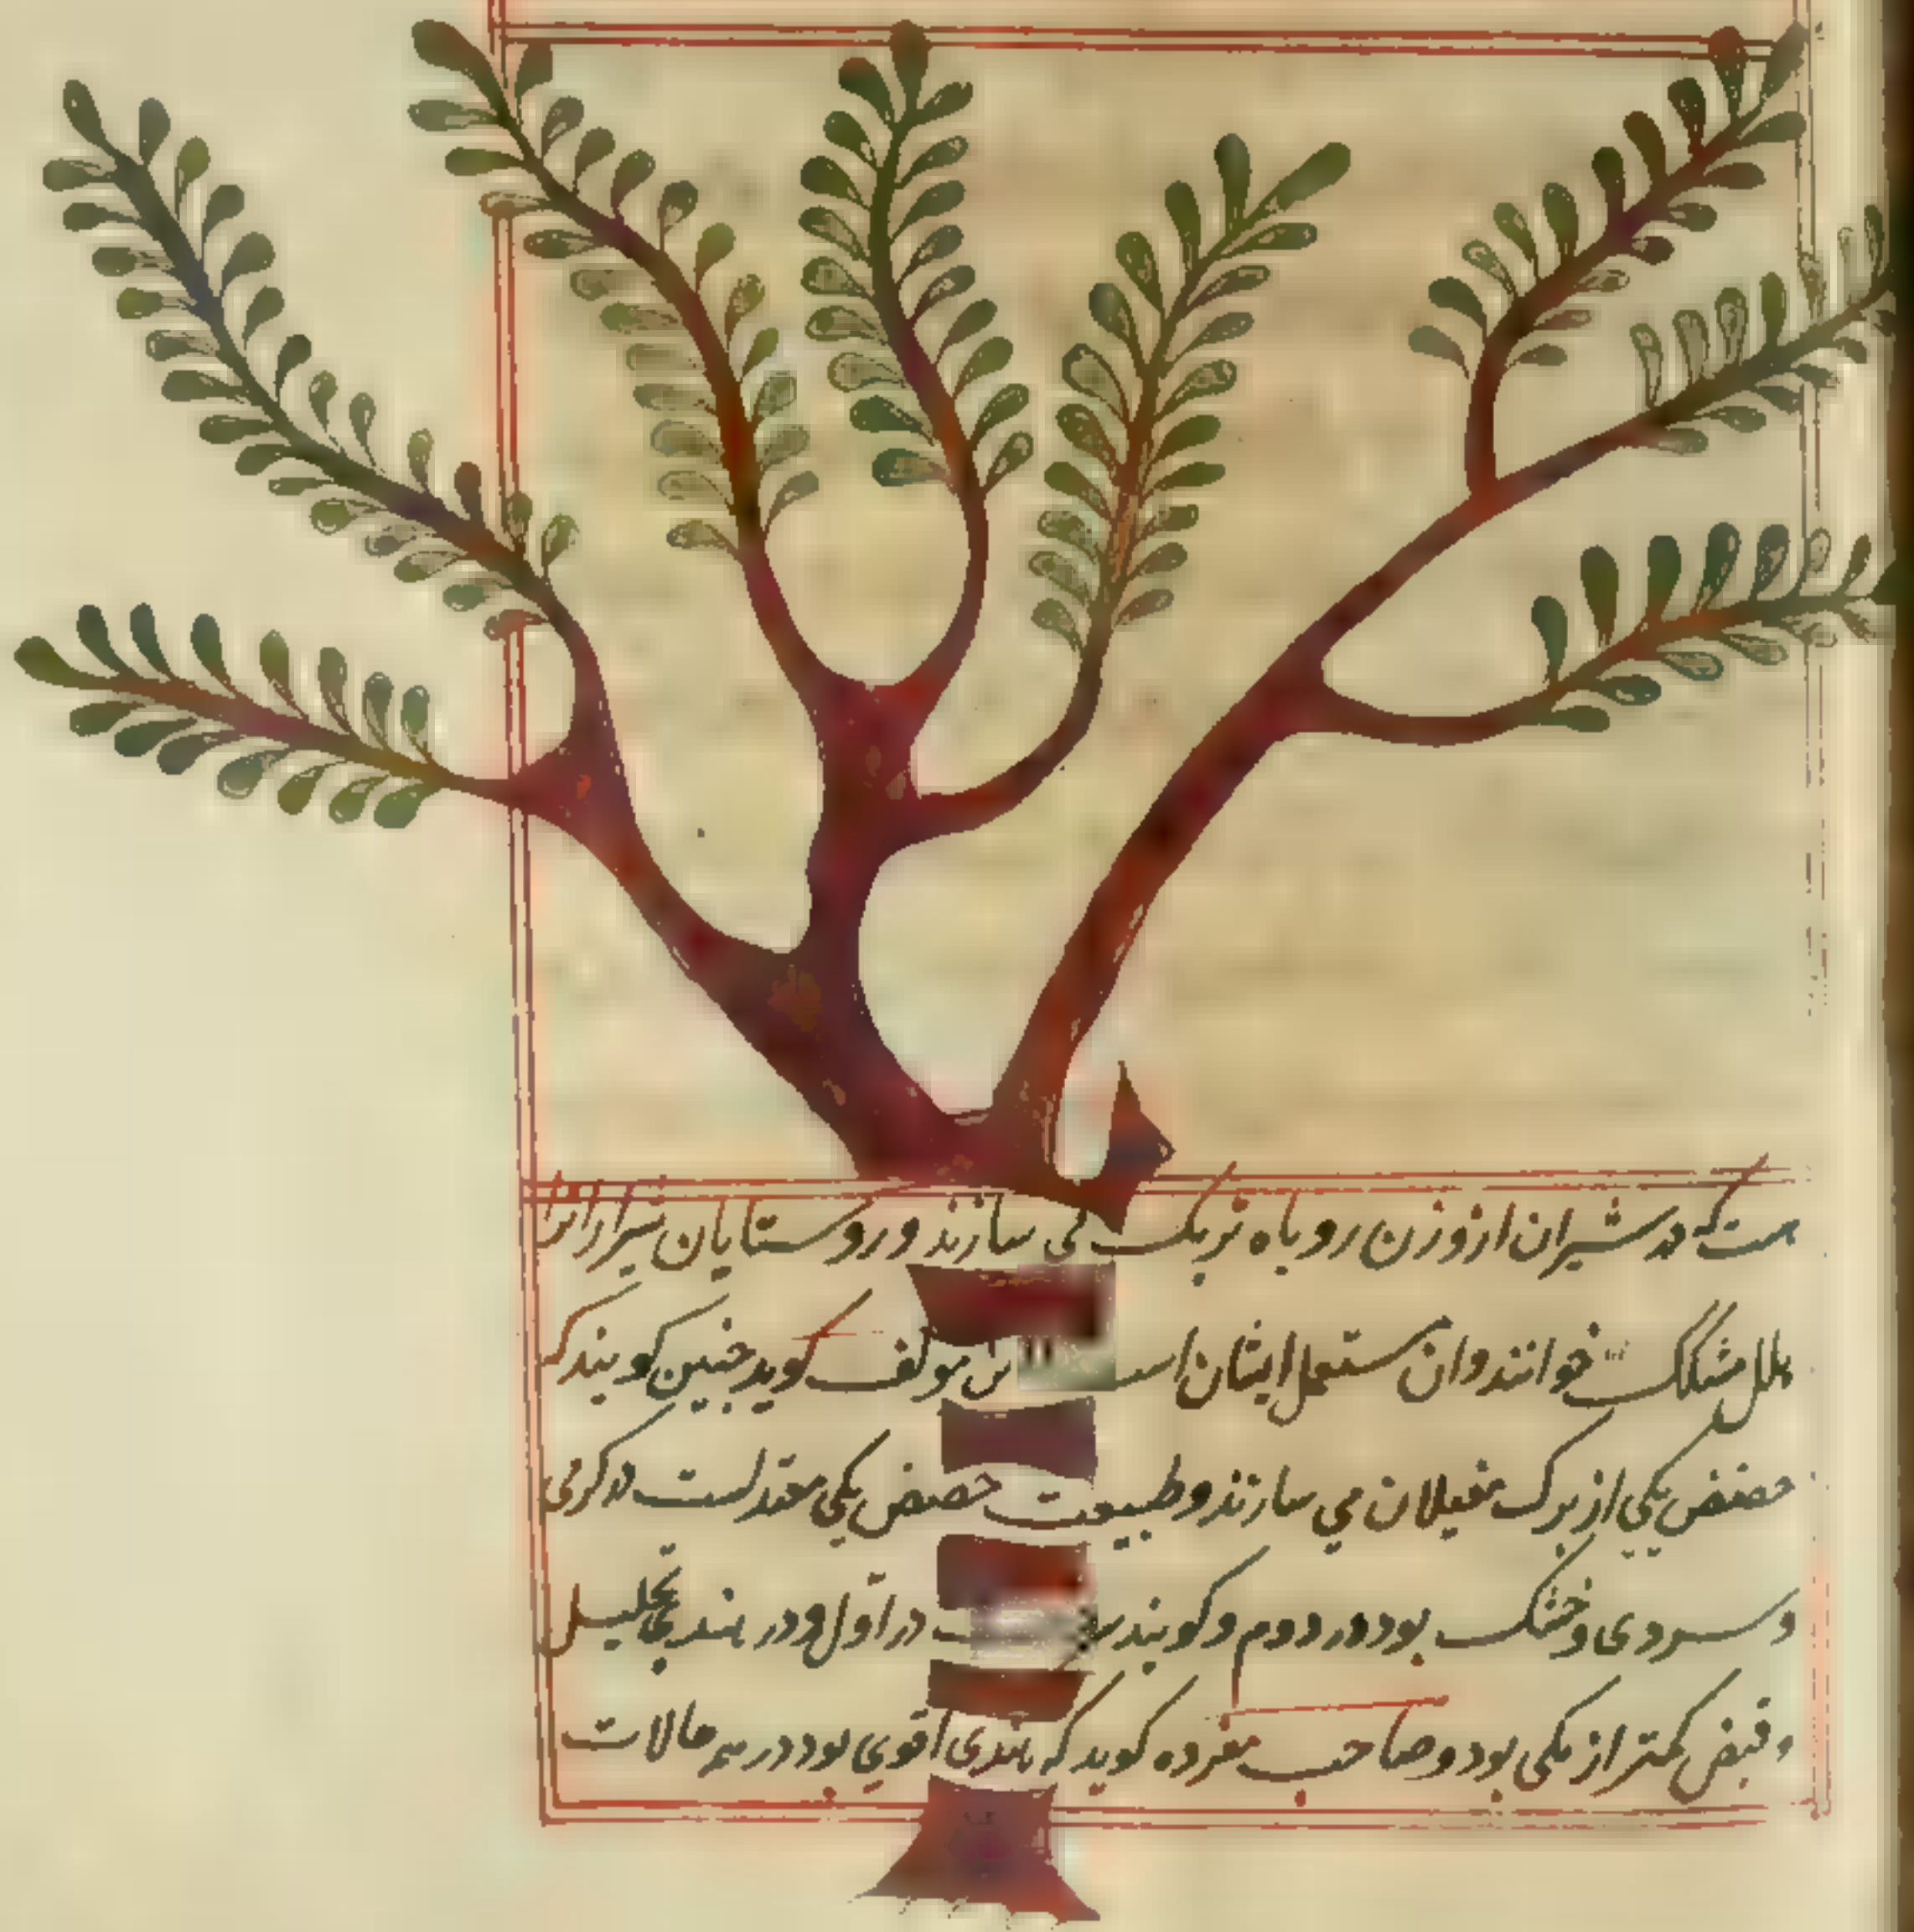 است که در شیران ازوزن روباه تربک می سازند و روستایان شیراز انرا
خوانند وان مستعمل ایشان مولف کوید چنین کویند که
حضض یکی از برک مغیلان می سازند و طبیعت حضض یکی معتدلست در کرمی
و سردی و خشک بود در دوم و کویند در اول و در هندی تحلیل
و قبض کمتر از مکی بود و صاحب مفرده کوید که هندی اقوی بود در همه حالات